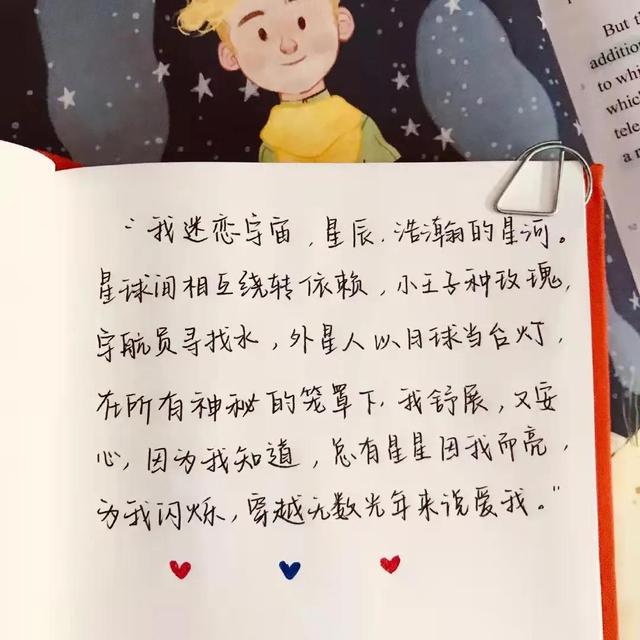 But t
addition
to whi
which
tele
a n
“我迷恋宇宙，星辰，浩瀚的星河。
星球间相互绕转依赖，小王子种玫瑰，
宇航员寻找水，外星人以月球当台灯，
在所有神秘的笼罩下，我舒展，又安
心，因为我知道，总有星星因我而亮，
为我闪烁，穿越无数光年来说爱我。”